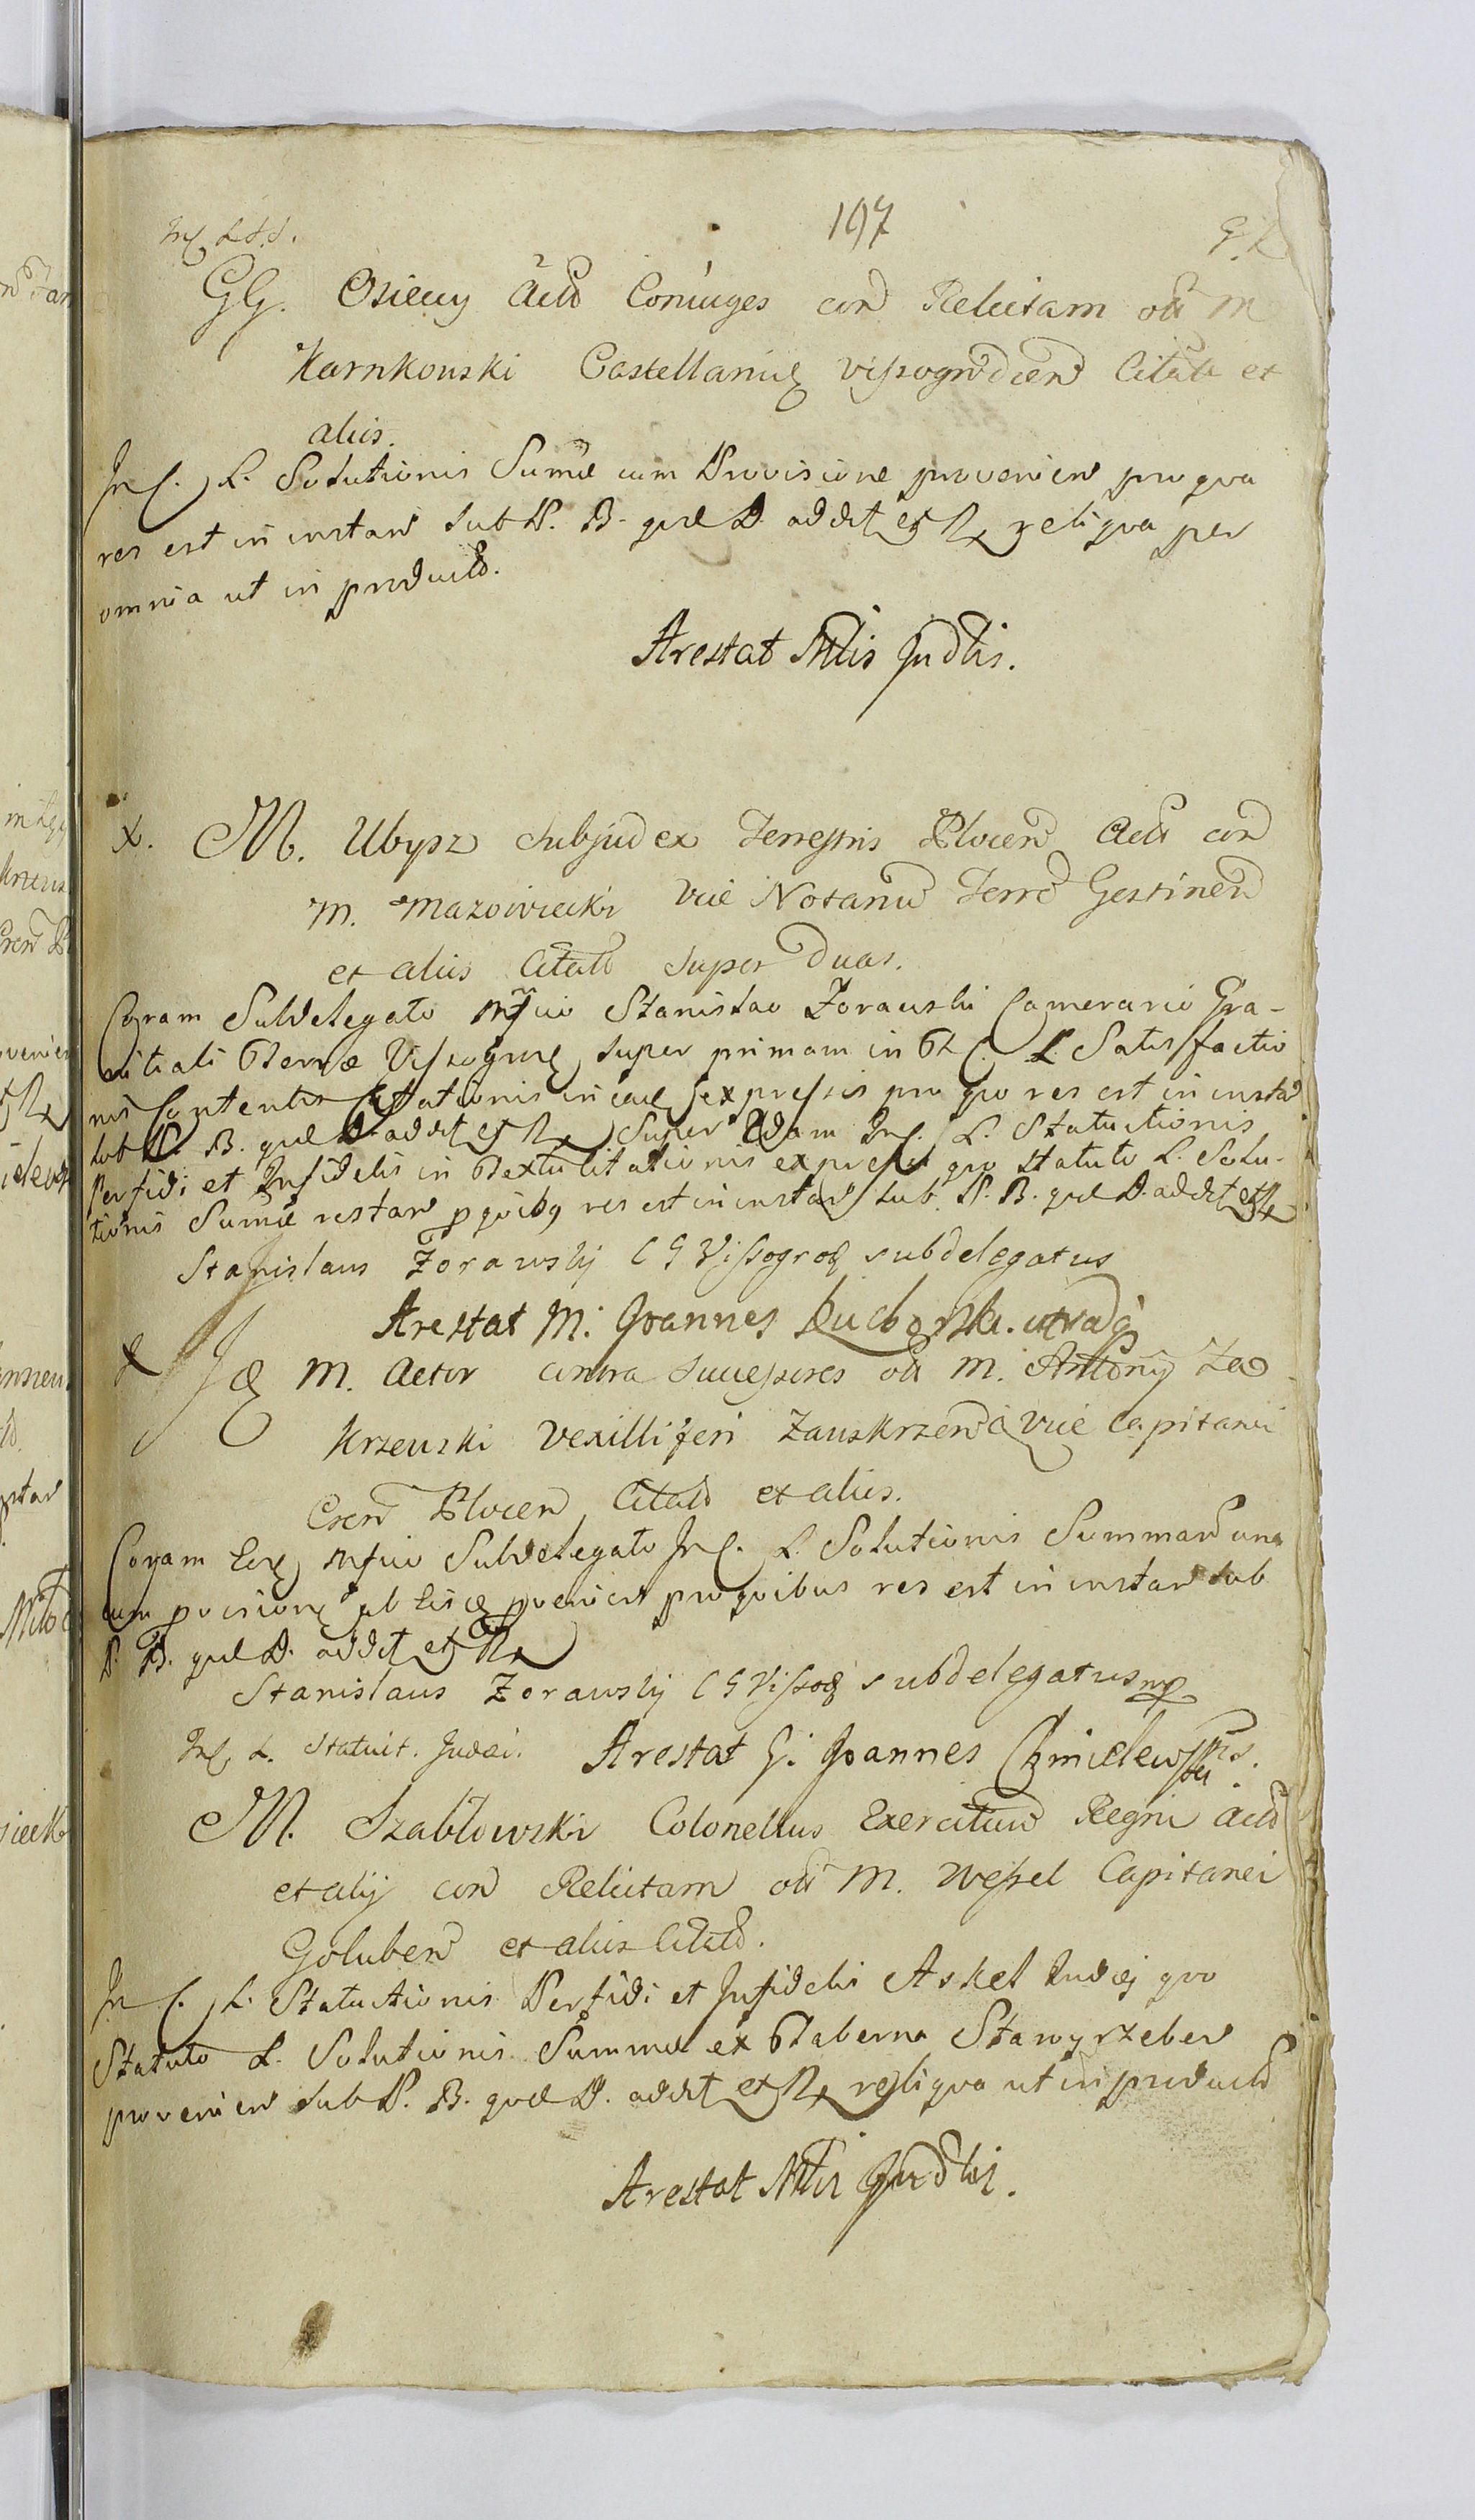 197
GG. Osieccy Actō Coniuges con̄ Relictam oli M
Karnkowski Castellanidę Vissogrodien̄ Citātā et
aliis.
In C. L. Solutionis Sumæ cum Provisione provenien̄ pro qva
res est in instan̄ sub P. B. qvæ D. addet et R reliqva per
omnia ut in producto.
Arestat Mtlis Judlis.
X. M. Ubysz Subjudex Terrestris Plocen̄ Actō con̄
M. Mazowiecki Vice Notariū Terrē Gostinen̄
et aliis Citatō super duas.
Coram Subdelegato Mfico Stanislao Zorawski Camerario Gra-
nitiali Terræ Vissogrodę super primam in R C. L. Satisfactio
nis Contentis Citationis in eadę expressis pro qvo res est in instan̄
sub P. B. qvæ D. addet et R Super 2dam In C. L. Statuitionis
Perfidi et Infidelis in Textu Citationis expressi qvo statuto L. Solu-
tionis Sumæ restan̄ p qvibq res est in instan̄ sub P. B. qvæ D. addet et R
Stanislaus Zorawsky C G Vissogrod subdelegatus
Arestat M. Joannes utradq
X Idę M. Actor contra Successores oli M. Antonÿ Za
krzewski Vexilliferi Zawskrzen̄ Vice Capitanei
Cren̄ Plocen̄ Citatō et aliis.
Coram Eodę Mfico Subdelegato In C. L. Solutionis Summarū una
cum pvisionę ab Eisdę pvenien̄ pro qvibus res est in instan̄ sub
P. B. qvæ D. addet et R
Stanislaus Zorawsky C G Vissog subdelegatus mp
In C. L. Statuit. Judæi. Arestat G. Joannes Chmielewski
M. Szabłowski Colonellus Exercituū Regni Actō
et alÿ con̄ Relictam oli M. Wessel Capitanei
Goluben̄ et aliis Citatō.
In C. L. Statuitionis Perfidi et Infidelis Askel Judæj qvo
Statuto L. Solutionis Summæ ex Taberna
provenien̄ sub P. B. qvæ D. addet et R reliqva ut in producto
Arestat Mtlis Judlis.